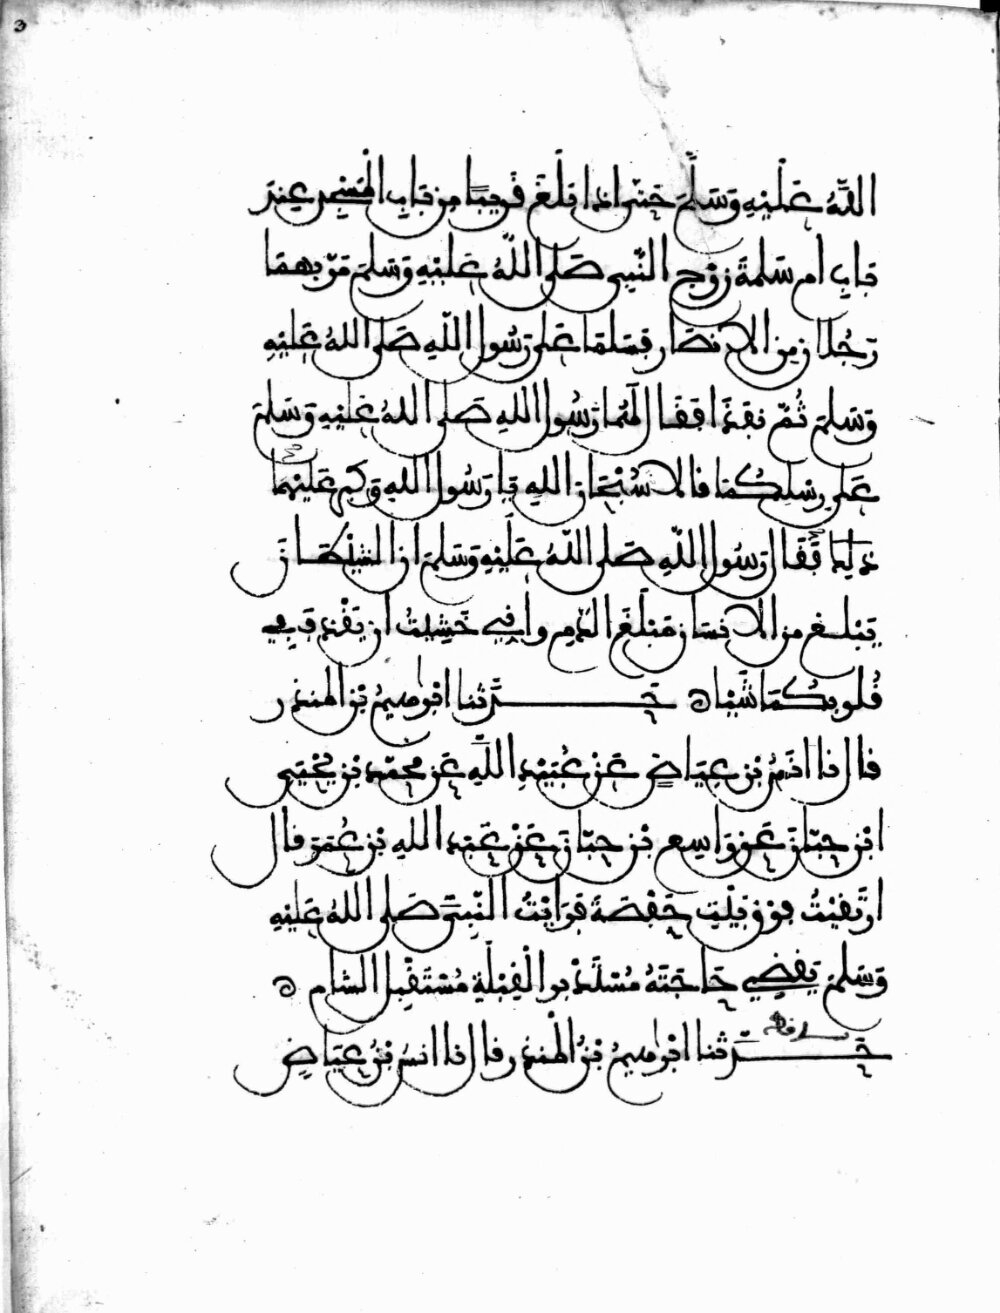 3
اللّٰهُ عَلَيْهِ وَسَلَّمَ حَتّى اذا بَلَغَ قَرِيبًا مِن بَابِ الْمَسْجِدِ عِنْدَ
بَابِ أم سَلمةَ زَوْجِ النَّبِي صَلى اللّهُ عَلَيْهِ وَسَلمَ مَرّ بِهمَا
رَجُلان مِن الانصَار فسَلمَا عَلى رَسُول اللّهِ صَلى اللهُ عَلَيْهِ
وَسَلمَ ثُمّ نَفَذَا فقَال لَهُما رَسُول اللهِ صَلى اللهُ عَلَيْهِ وَسَلمَ
عَلى رِسْلِكُمَا قالا سُبْحَان اللهِ يا رَسُول اللهِ وَكبر عَلَيْهِمَا
ذلِك فَقَال رَسُول اللّهِ صَلى اللّهُ عَلَيْهِ وَسَلمَ ان الشيْطَانَ
يَبْلغ من الانسَان مَبْلَغَ الدم واني خَشِيتُ ان يَقْذفَ في
قُلوبكُمَا شَيْئا ه حَدَّثنا ابْراهيمُ بْن المنذر
قال نا انَسُ بْن عِيَاض عَن عُبَيْدِ اللّهِ عَن محمّد بْن يَحْيَى
ابْن حَبّانَ عَن وَاسِع بْن حبّانَ عَنْ عَبْد اللهِ بْن عُمَرَ قال
ارتَقَيْتُ فوْق بَيْتِ حَفْصَةَ فرَايْتُ النّبِيَّ صَلى اللهُ عَلَيْهِ
وَسَلمَ يَقضِي حَاجَتَهُ مُسْتَدْبر الْقِبْلةِ مُسْتَقْبل الشام ه
حَدّثنا ابْراهيمُ بْنُ المنذر قال نا انسُ بْنُ عِيَاضٍ